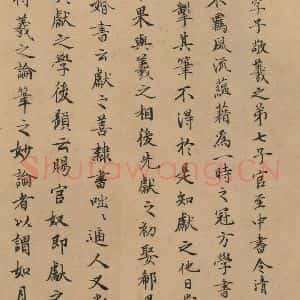 字子敬羲之第七子官至中書令清
不羈風流蘊藉為一時之冠方學書
掣其筆不得於是知獻之他日
果與羲之相後先獻之初娶郗
婚書云獻之善隸書咄咄逼人又
獻之學後題云賜官奴即獻之
得羲之論筆之妙論者以謂如丹
Shufawang.CN